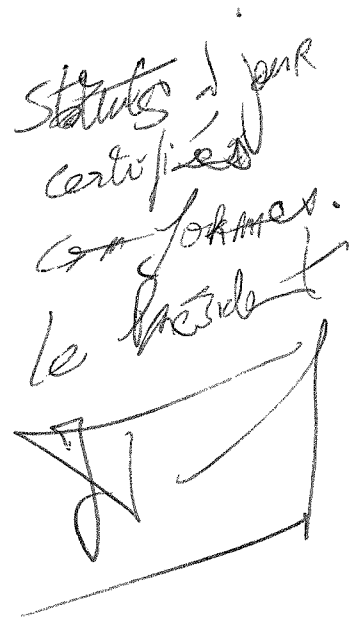 Statuts à jour
certifiés
conformes.
Le Président